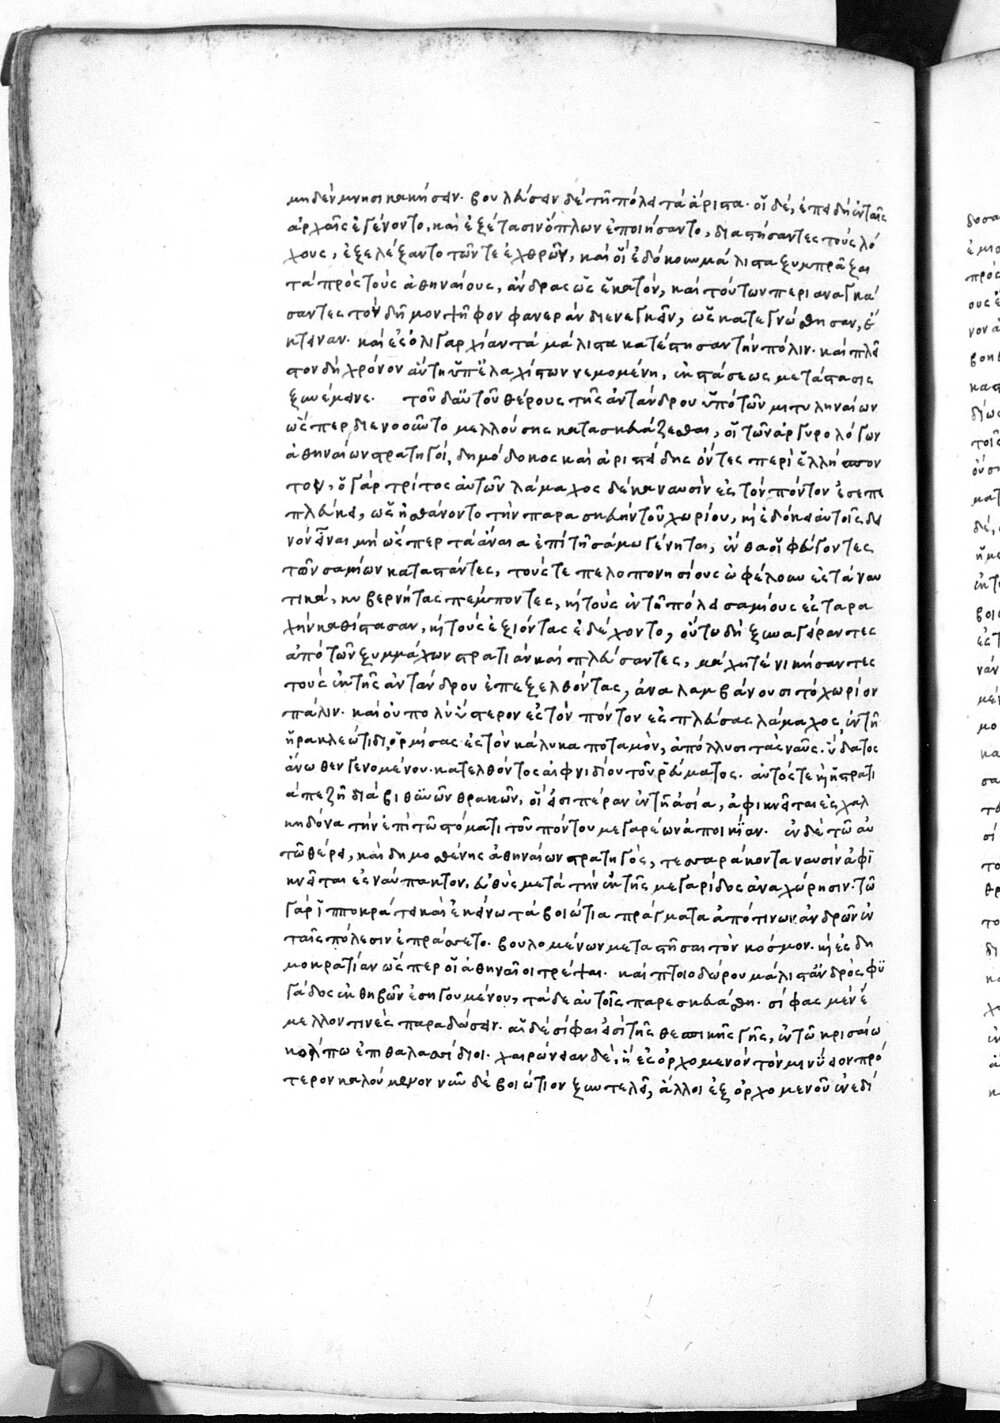 μηδὲν μνησικακήσειν· βουλεύσειν δὲ τῆ πόλει τὰ ἄριστα· οἱ δὲ, ἐπειδὴ ἐν ταῖς
ἀρχαῖς ἐγένοντο, καὶ ἐξέτασιν ὅπλων ἐποιήσαντο, διαστήσαντες τοὺς λό
χους, ἐξελέξαντο τῶν τε ἐχθρῶν, καὶ οἳ ἐδόκουν μάλιστα ξυμπρᾶξαι
τὰ πρὸς τοὺς ἀθηναίους, ἄνδρας ὡς ἑκατὸν, καὶ τούτων περι αναγκά
σαντες τὸν δῆμον ψῆφον φανερὰν διενεγκεῖν, ὡς κατεγνώσθησαν, ἔ
κτειναν· καὶ ἐς ὀλιγαρχίαν τὰ μάλιστα κατέστησαν τὴν πόλιν· καὶ πλεῖ
στον δὴ χρόνον αὕτη ὑπ' ἐλαχίστων νεμομένη, ἐκ στάσεως μετάστασις
ξυνέμεινε· τοῦ δ' αὐτοῦ θέρους τῆς ἀντάνδρου ὑπὸ τῶν μιτυληναίων
ὥσπερ διενοοῦντο μελλούσης κατασκευάζεσθαι, οἱ τῶν ἀργυρολόγων
ἀθηναίων στρατηγοί, δημόδοκος καὶ ἀριστείδης ὄντες περὶ ἑλλήσπον
τον, ὁ γὰρ τρίτος αὐτῶν λάμαχος δέκα ναυσὶν ἐς τὸν πόντον ἐσεπε
πλεύκει, ὡς ἠσθάνοντο τὴν παρασκευὴν τοῦ χωρίου, κὶ ἐδόκει αὐτοῖς δει
νὸν εἶναι μὴ ὥσπερ τὰ ἄναια ἐπὶ τῆ σάμω γένηται, ἔνθα οἱ φεύγοντες
τῶν σαμίων καταστάντες, τούς τε πελοπονησίους ὠφέλουν ἐς τὰ ναυ
τικά, κυβερνήτας πέμποντες, κὶ τοὺς ἐν τῆ πόλει σαμίους ἐς ταρα
χὴν καθίστασαν, κὶ τοὺς ἐξιόντας ἐδέχοντο, οὕτω δὴ ξυναγείραντες
ἀπὸ τῶν ξυμμάχων στρατιὰν καὶ πλεύσαντες, μάχη τε νικήσαντες
τοὺς ἐκ τῆς ἀντάνδρου ἐπεξελθόντας, ἀναλαμβάνουσι τὸ χωρίον
πάλιν· καὶ οὐ πολὺ ὕστερον ἐς τὸν πόντον ἐσπλεύσας λάμαχος, ἐν τῆ
ἡρακλεώτιδι ὁρμίσας ἐς τὸν κάληκα ποταμὸν, ἀπόλλυσι τὰς ναῦς· ὕδατος
ἄνωθεν γενομένου· κατελθόντος αἰφνιδίου τοῦ ῥεύματος· αὐτός τε κὶ ἡ στρατι
ὰ πεζῆ διὰ βιθυνῶν θρακῶν, οἵ εἰσι πέραν ἐν τῆ ἀσία, ἀφικνεῖται ἐς χαλ
κηδόνα τὴν ἐπὶ τῶ στόματι τοῦ πόντου μεγαρέων ἀποικίαν· ἐν δὲ τῶ αὐ
τῶ θέρει, καὶ δημοσθένης ἀθηναίων στρατηγὸς, τεσσαράκοντα ναυσὶν ἀφι
κνεῖται ἐς ναύπακτον, εὐθὺς μετὰ τὴν ἐκ τῆς μεγαρίδος ἀναχώρησιν· τῶ
γὰρ ἱπποκράτει καὶ ἐκείνω τὰ βοιώτια πράγματα ἀπό τινων ἀνδρῶν ἐν
ταῖς πόλεσιν ἐπράσσετο· βουλομένων μεταστῆσαι τὸν κόσμον· κὶ ἐς δη
μοκρατίαν ὥσπερ οἱ ἀθηναῖοι τρέψαι· καὶ πτοιοδώρου μάλιστ' ἀνδρὸς φυ
γάδος ἐκ θηβῶν ἐσηγουμένου, τάδε αὐτοῖς παρεσκευάσθη· σίφας μὲν ἔ
μελλόν τινες παραδώσειν· αἱ δὲ σίφαι εἰσὶ τῆς θεσπικῆς γῆς, ἐν τῶ κρισαίω
κόλπω ἐπιθαλασσίδιοι· χαιρώνειαν δὲ, ἣ ἐς ὀρχομενὸν τὸν μινύειον πρό
τερον καλούμενον νῦν δὲ βοιώτιον ξυντελεῖ, ἄλλοι ἐξ ὀρχομενοῦ ἐνεδί